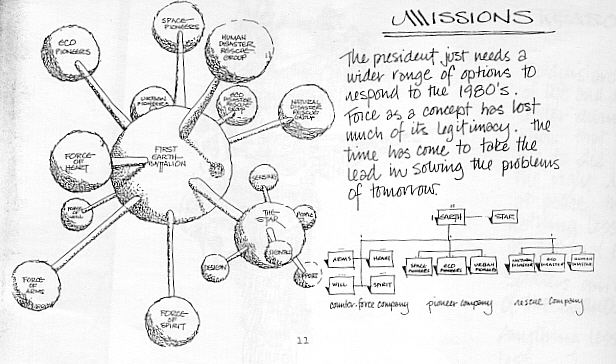 MISSIONS
The president just needs a
wider range of options to
respond to the 1980's.
Force as a concept has lost
much of its legitimacy. The
time has come to take the
lead in solving the problems
of tomorrow.
SPACE-
PIONEERS
ECO
PIONEERS
HUMAN
DISASTER
RESCUE-
GROUP
URBAN
PIONEERS
ECO
DISASTER
RESCUE
GROUP
NATURAL
DISASTER
RESCUE
GROUP
FIRST
EARTH-
BATTALION
FORCE-
OF
HEART
FORCE
OF
WILL
FORCE-
OF
ARMS
FORCE-
OF
SPIRIT
THE
STAR
SENSING
PEOPLE
SIGNAL
DESIGN
SUPPORT
EARTH
STAR
ARMS
HEART
WILL
SPIRIT
counter-force company
SPACE-
PIONEERS
ECO
PIONEERS
URBAN
PIONEERS
pioneer company
NATURAL
DISASTER
ECO
DISASTER
HUMAN
DISASTER
rescue company
11